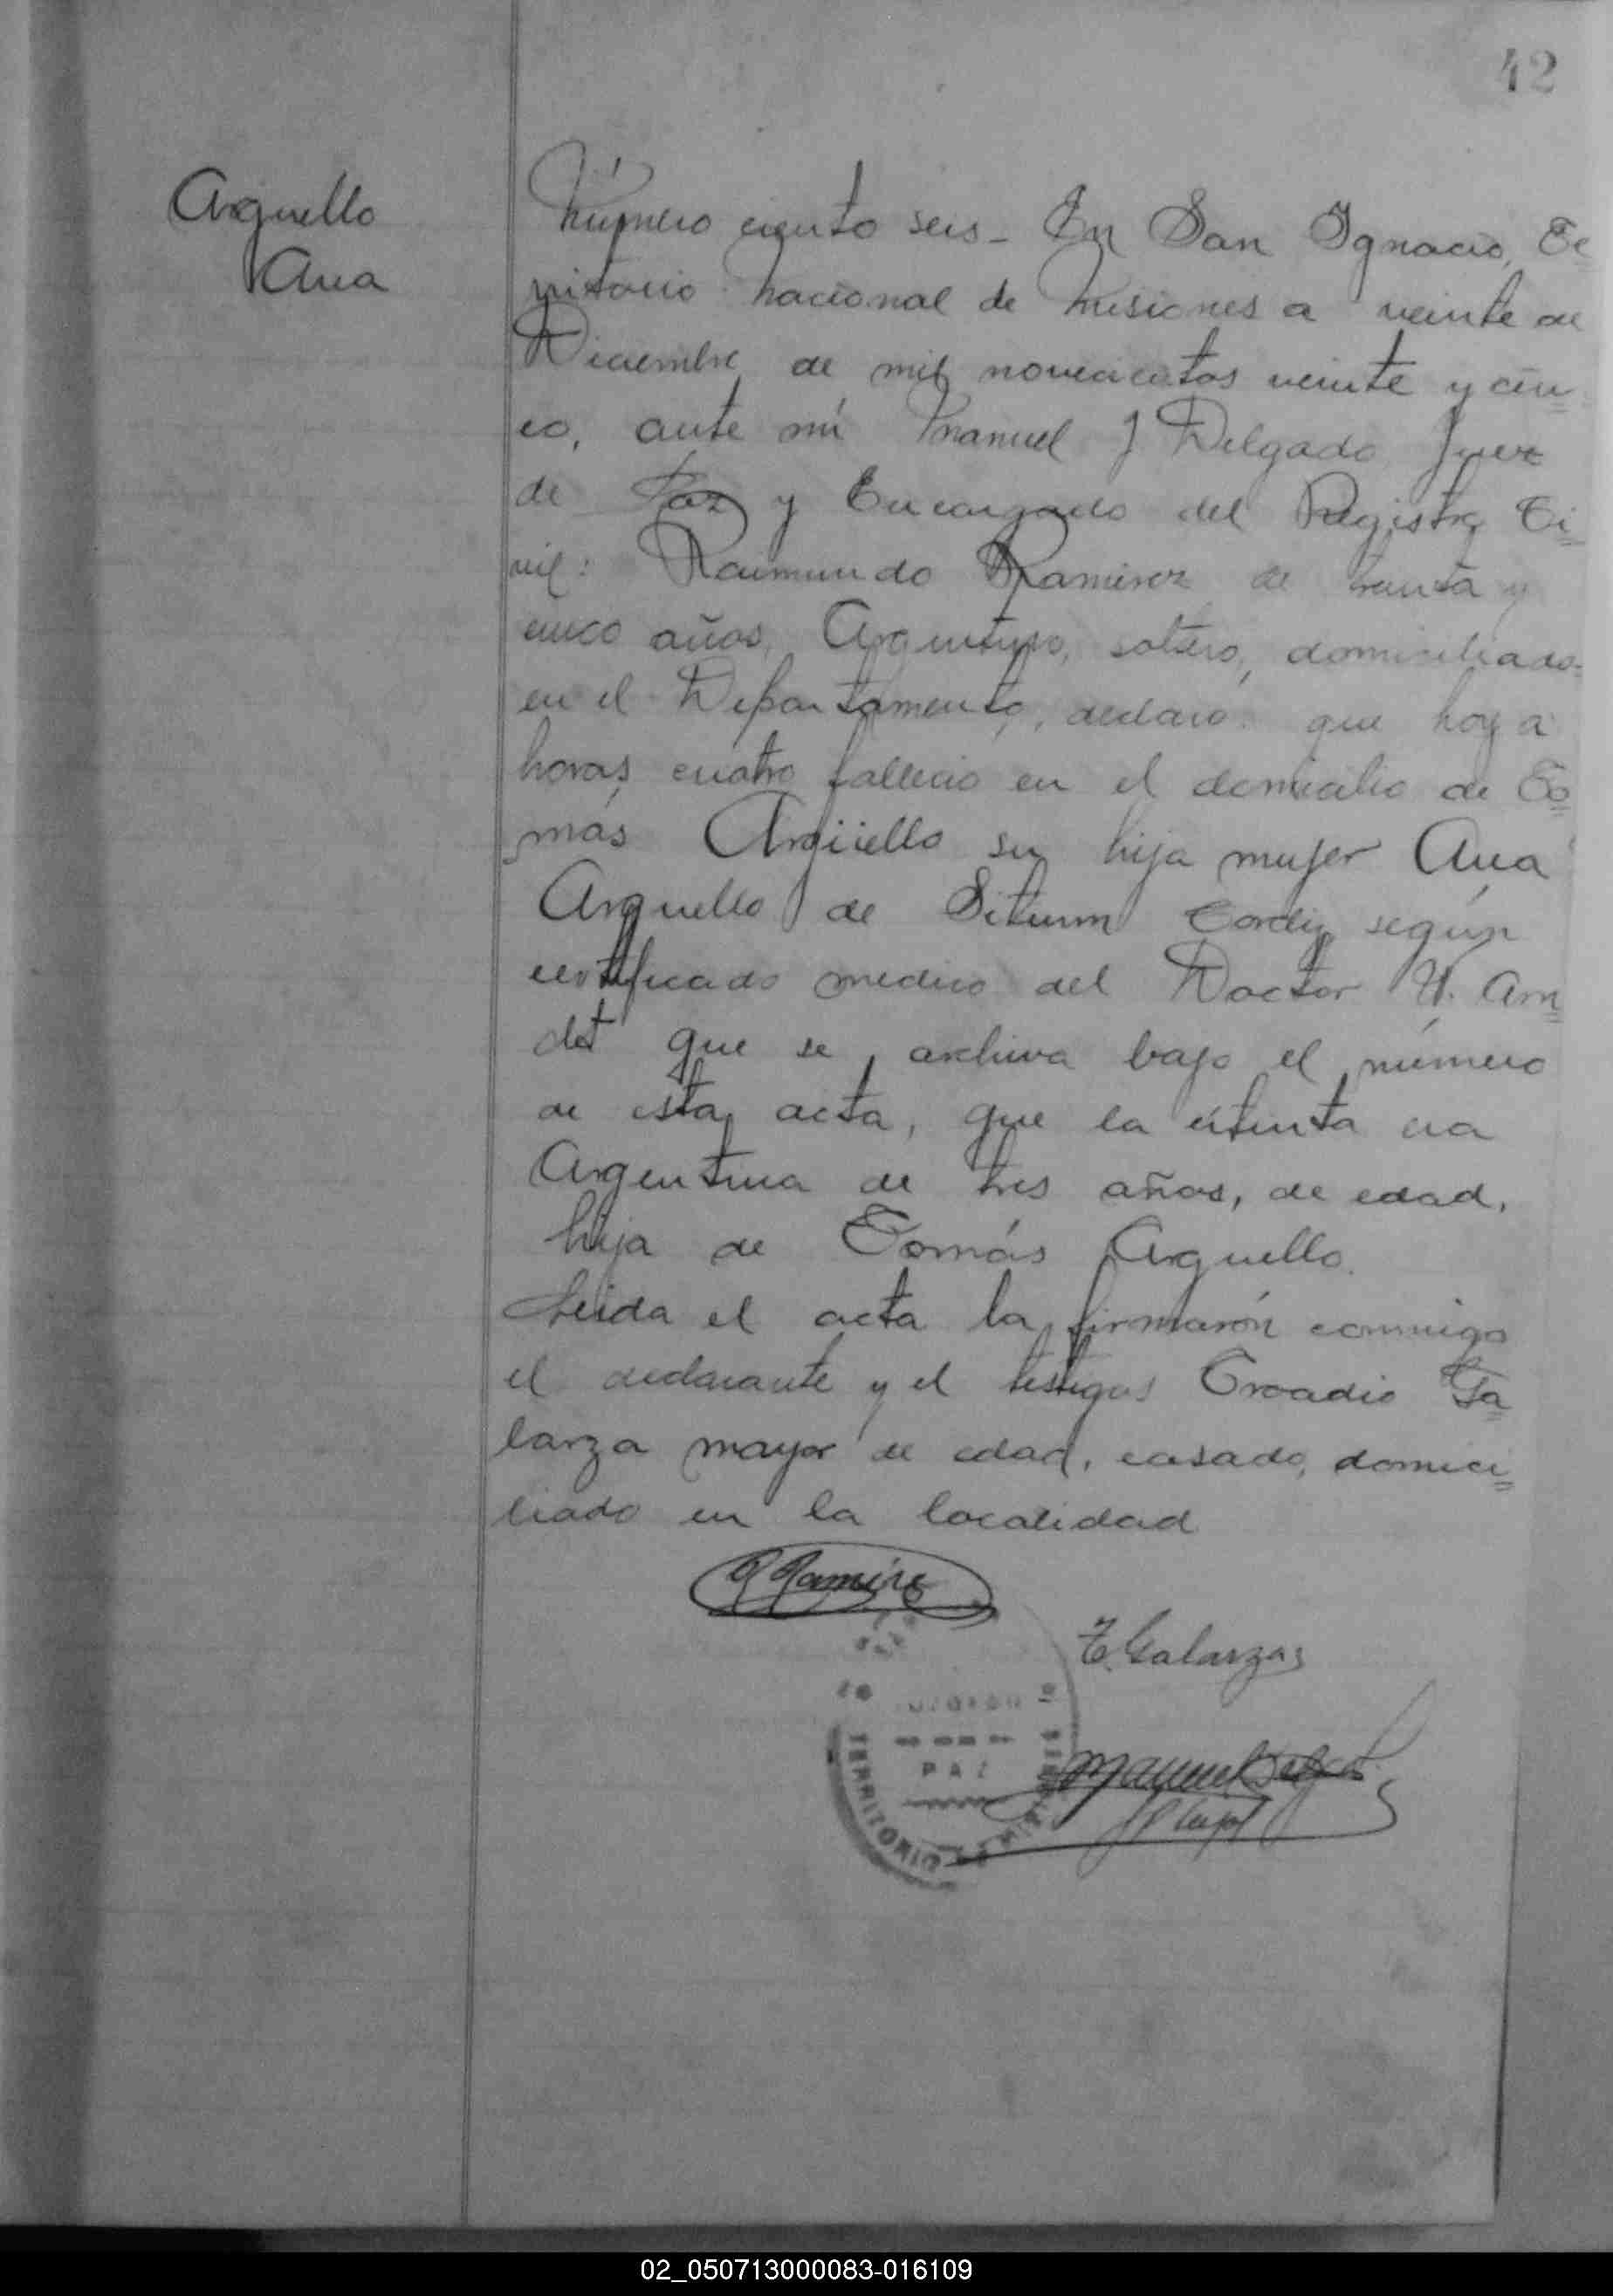 42
Arguello
Ana
Número ciento seis - En San Ignacio, Te
rritorio nacional de Misiones a veinte de
Diciembre de mil novecientos veinte y cin
co, ante mí Manuel J Delgado Juez
de Paz y Encargado del Registro Ci
vil: Raimundo Ramirez de treinta y
cinco años, Argentino, soltero, domiciliado
en el Departamento, declaró: que hoy a
horas cuatro fallecio en el domicilio de To
más Argüello su hija mujer Ana
Arguello de según
certificado medico del Doctor Arn
dt que se archiva bajo el número
de esta acta, que la extinta era
Argentina de tres años, de edad,
hija de Tomás Arguello.
Leida el acta la firmarón conmigo
el declarante y el testigos Troadio Ga
larza mayor de edad, casado, domici
liado en la localidad
R Ramirez
T. Galarzas
JUZGADO
PAZ
TERRITORIO
Manuel Delgado
02_050713000083-016109